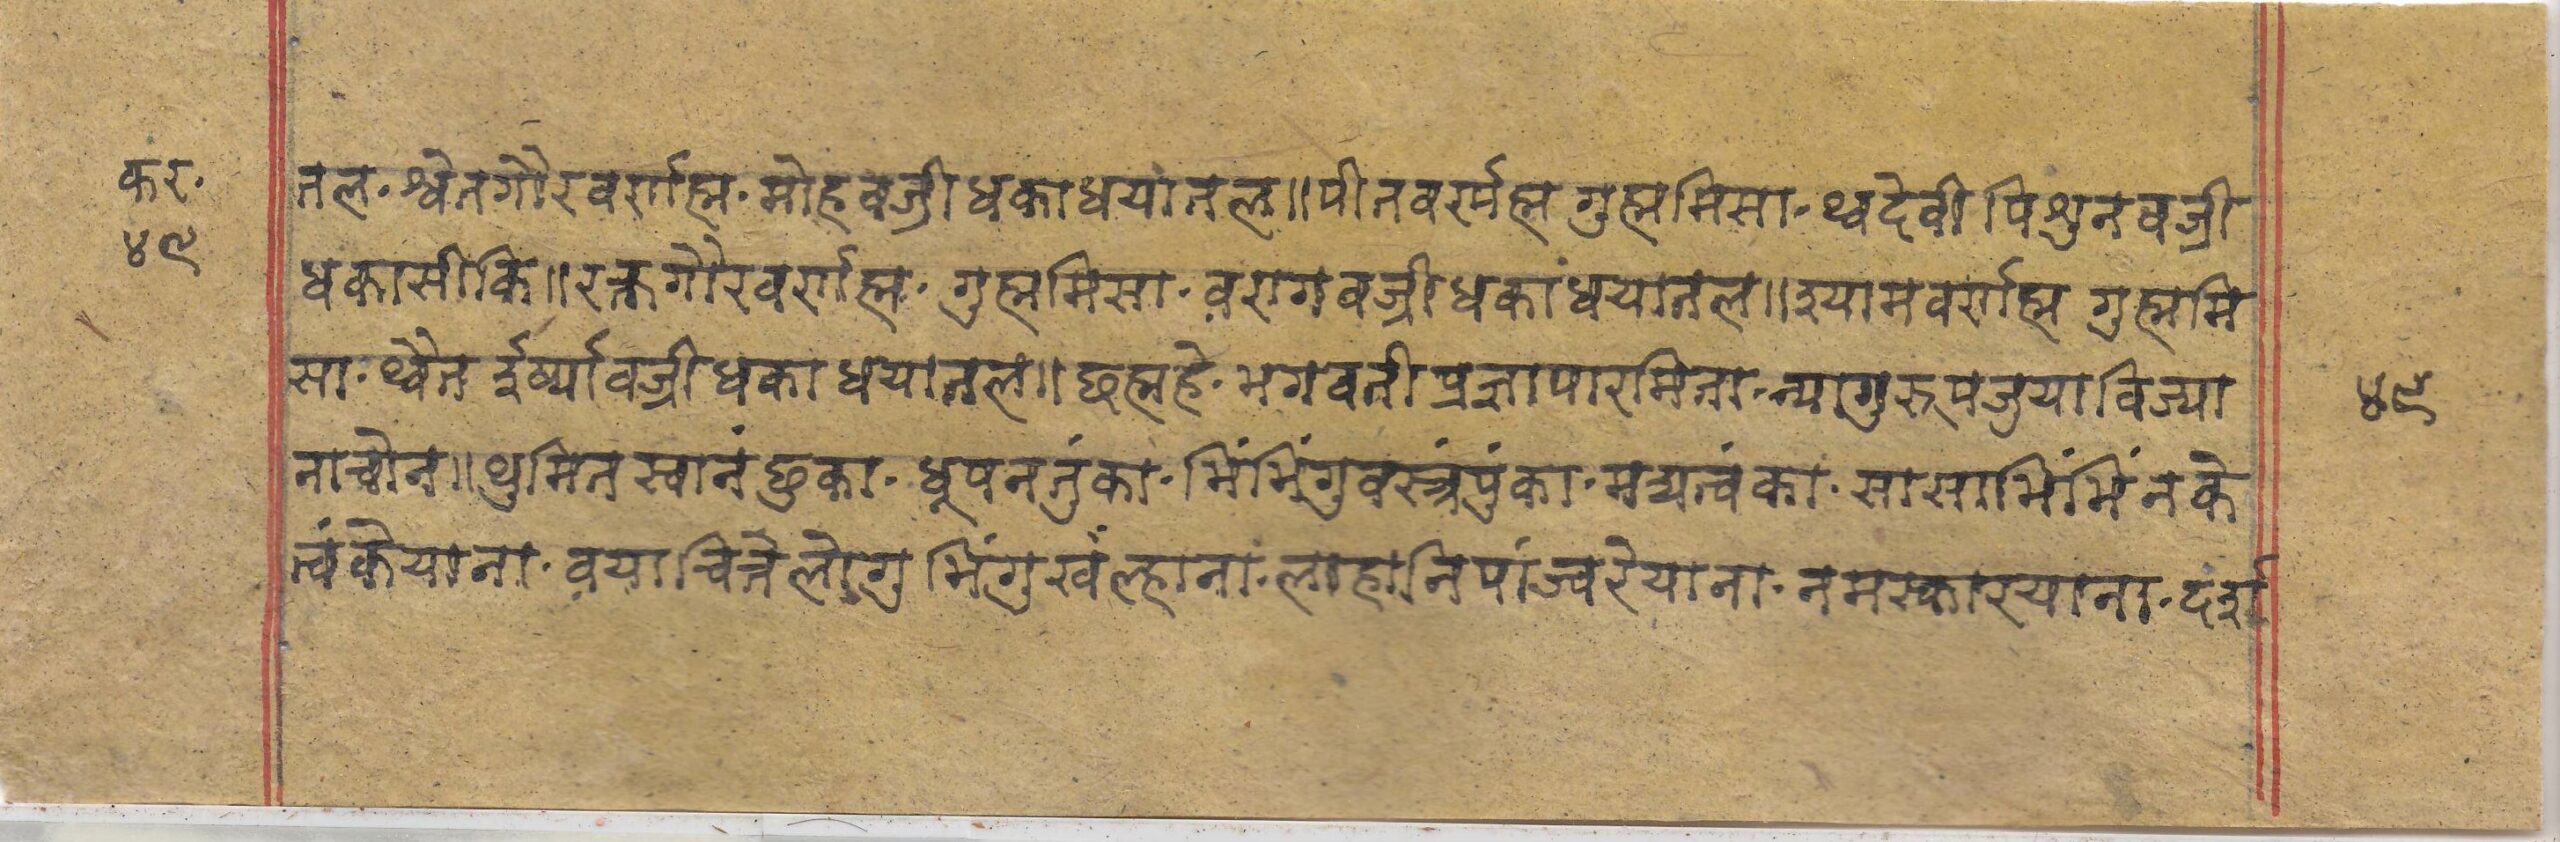 कर·
४९
तल· श्वेतगौरवर्णह्म· मोहवज्रीधकाधयातल॥ पीतवर्णह्म गुह्ममिसा· थ्वदेवी पिशुनवज्री
धकासीकि॥ रक्तगौरवर्णह्म· गुह्ममिसा· वरागवज्रीधकांधयातल॥ श्यामवर्णह्म गुह्ममि
सा· थ्वैत ईर्ष्यावज्रीधका धयातल॥ छह्महे· भगवती प्रज्ञापारमिता· न्यागुरूपजुयाविज्या
नाचोन॥ थुमित स्वानंछुका· धूपनतुंका· भिंभिंगुवस्त्रंपुंका· मद्यत्वंका· सासाभिंभिं नके
त्वंकेयाना· वयाचित्तेलोगु भिंगुखंल्हाना· लाहानिपांज्वरेयाना· नमस्कारयाना· दर्श
४९